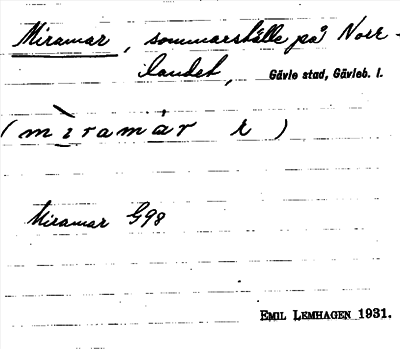 Miramar, sommarställe på Norr-
landet, Gävle stad, Gävleb. l.
(miramár r)
Miramar G98
EMIL LEMHAGEN 1931.